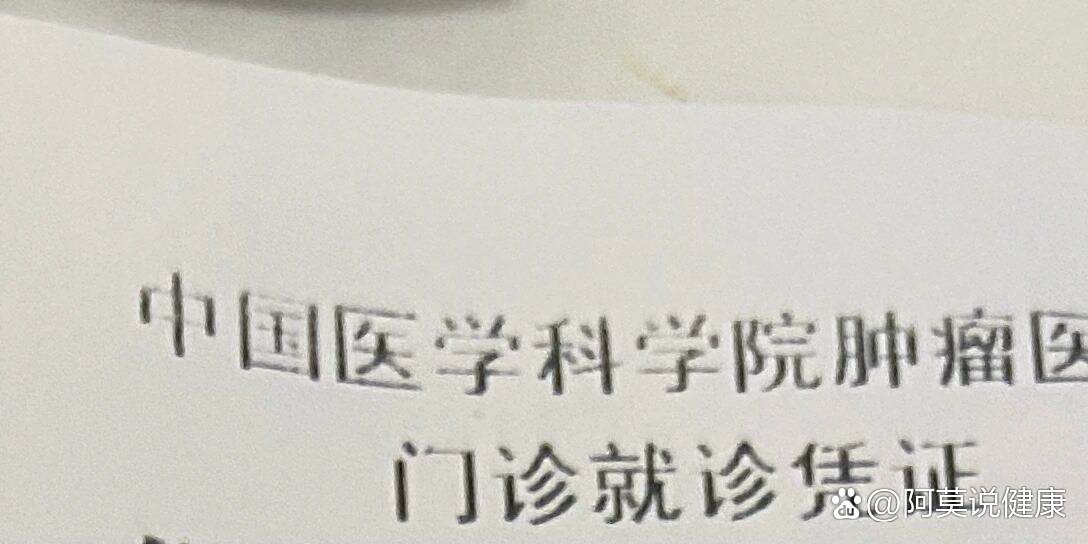 中国医学科学院肿瘤医
门诊就诊凭证
@阿莫说健康